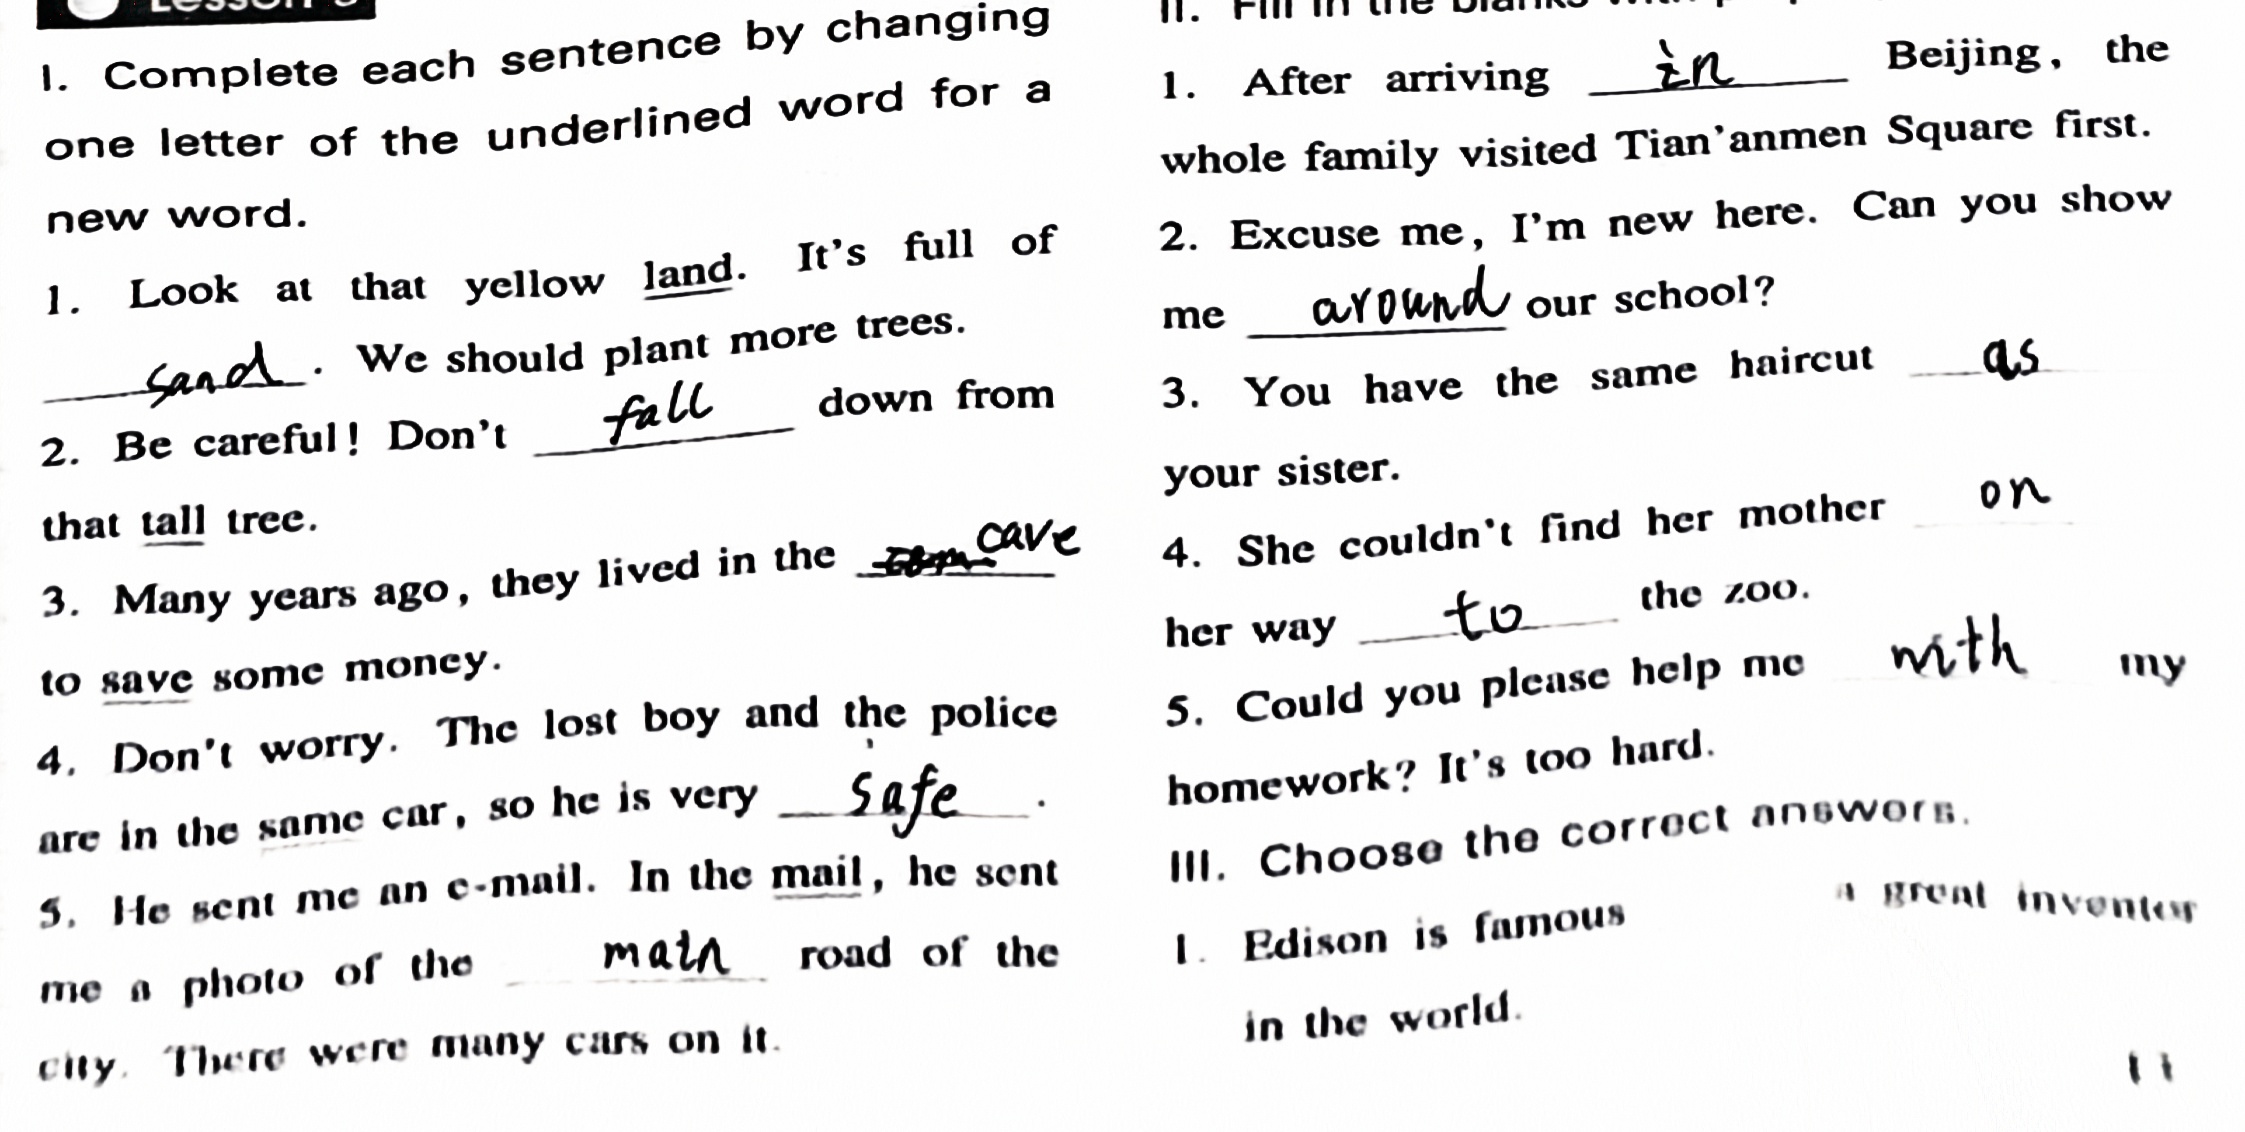 I. Complete each sentence by changing
one letter of the underlined word for a
new word.
1. Look at that yellow land. It's full of
sand. We should plant more trees.
2. Be careful! Don't fall down from
that tall tree.
3. Many years ago, they lived in the cave
to save some money.
4. Don't worry. The lost boy and the police
are in the same car, so he is very safe.
5. He sent me an e-mail. In the mail, he sent
me a photo of the main road of the
city. There were many cars on it.
II. Fill in the blanks
1. After arriving in Beijing, the
whole family visited Tian'anmen Square first.
2. Excuse me, I'm new here. Can you show
me around our school?
3. You have the same haircut as
your sister.
4. She couldn't find her mother on
her way to the zoo.
5. Could you please help me with my
homework? It's too hard.
III. Choose the correct answers.
1. Edison is famous a great inventor
in the world.
11